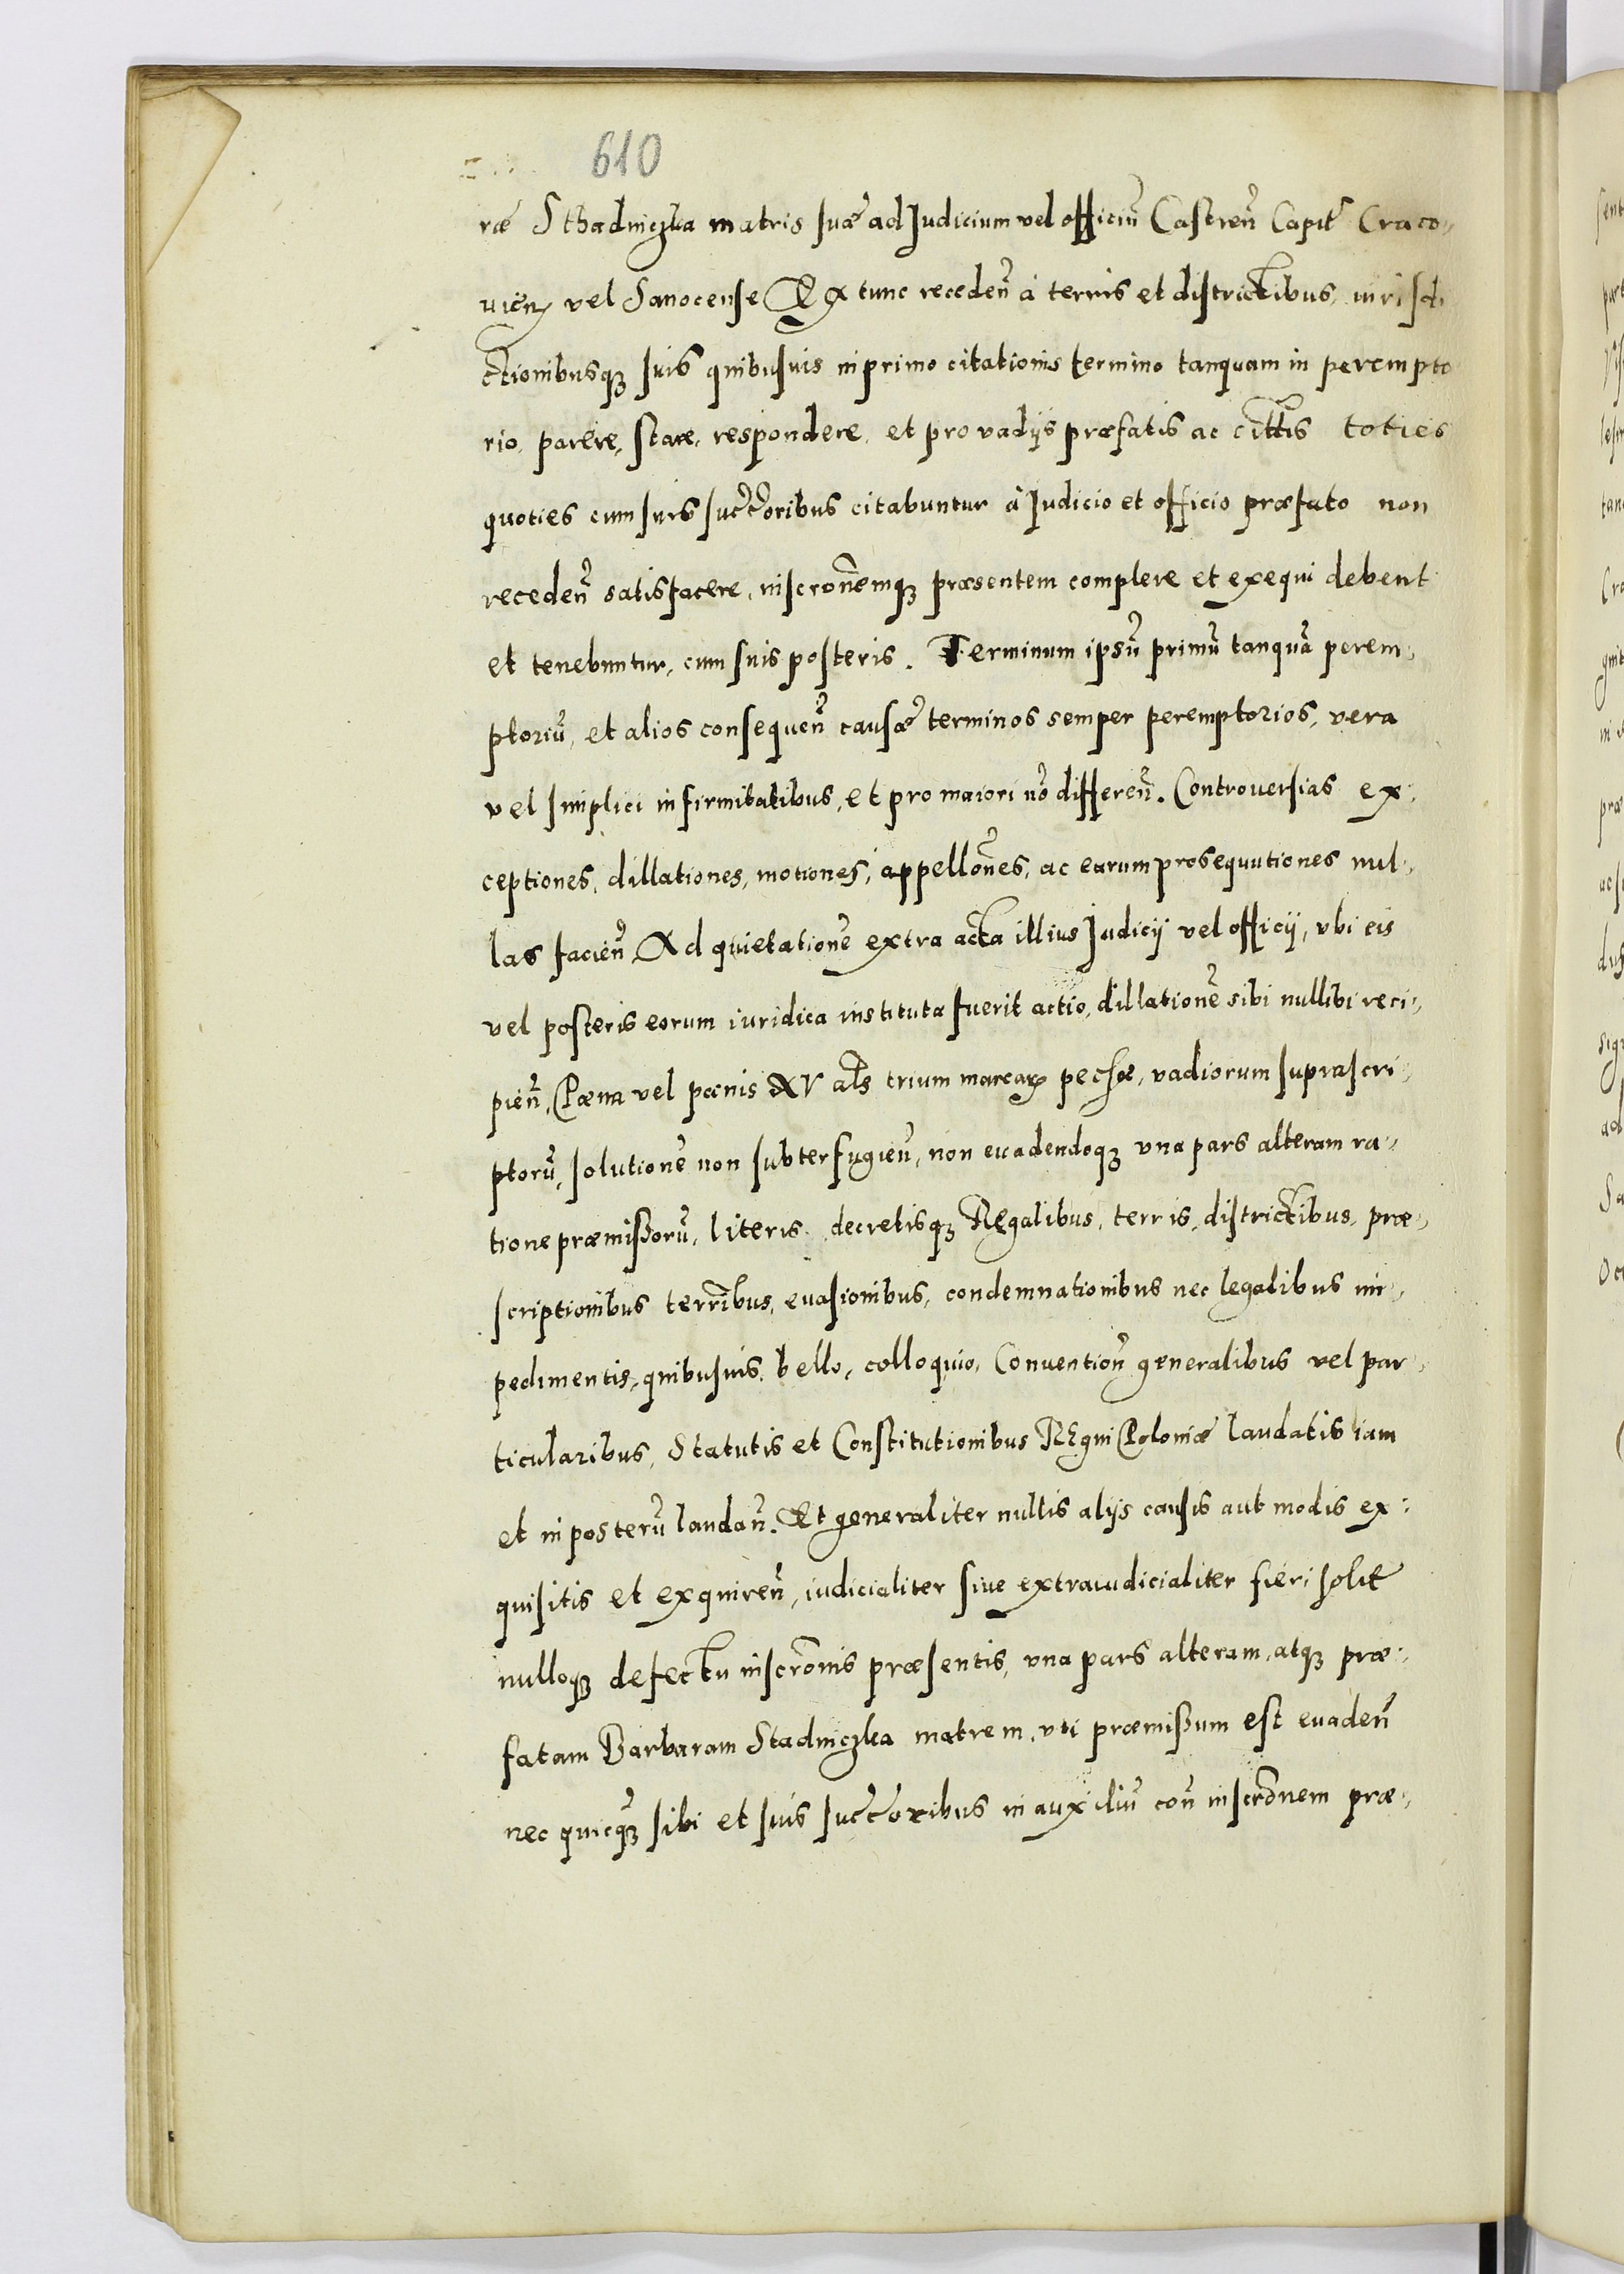 610
ræ Sthadniczka matris suæ ad Judicium vel officiũ Castreñ Capit͛ Craco„
uieñ vel Sanocense Ex tunc recedeñ à terris et districtibus, iurisdi
ctionibusqꝫ suis quibusuis in primo citationis termino tanquam in perempto
rio, parere, stare, respondere, et pro vadijs præfatis ac cittis toties
quoties cum suis succ̃oribus citabuntur à Judicio et officio præfato non
recedeñ satisfacere, inscrõnemqꝫ præsentem complere et exequi debent
et tenebuntur, cum suis posteris. Terminum ipsũ primũ tanquã perem„
ptoriũ, et alios consequeñ causæ terminos semper peremptorios, vera
vel simplici infirmitatibus, et pro maiori nõ differeñ. Controuersias ex„
ceptiones, dillationes, motiones, appellõnes, ac earum prosequutiones nul„
las facieñ Ad quietationẽ extra acta illius Judicij vel officij, vbi eis
vel posteris eorum iuridica instituta fuerit actio, dillationẽ sibi nullibi reci„
pieñ, Pæna vel pænis XV als trium marcarꝝ pechæ, vadiorum suprascri„
ptorũ, solutionẽ non subterfugieñ, non euadendoqꝫ vna pars alteram ra„
tione præmißorũ, literis decretisqꝫ Regalibus, terris, districtibus, præ„
scriptionibus terr̃ibus, euasionibus, condemnationibus nec legalibus im„
pedimentis, quibusuis, bello, colloquio, Conuentioñ generalibus vel par„
ticularibus, Statutis et Constitutionibus Regni Poloniæ laudatis iam
et in posterũ laudañ. Et generaliter nullis alijs causis aut modis ex„
quisitis et exquireñ, iudicialiter siue extraiudicialiter fieri solit͛
nulloqꝫ defectu inscrõnis præsentis, vna pars alteram, atqꝫ præ„
fatam Barbaram Stadniczka matrem, vti præmißum est euadeñ
nec quicqꝫ̃ sibi et suis succ̃oribus in auxiliũ coñ inscrõnem præ„